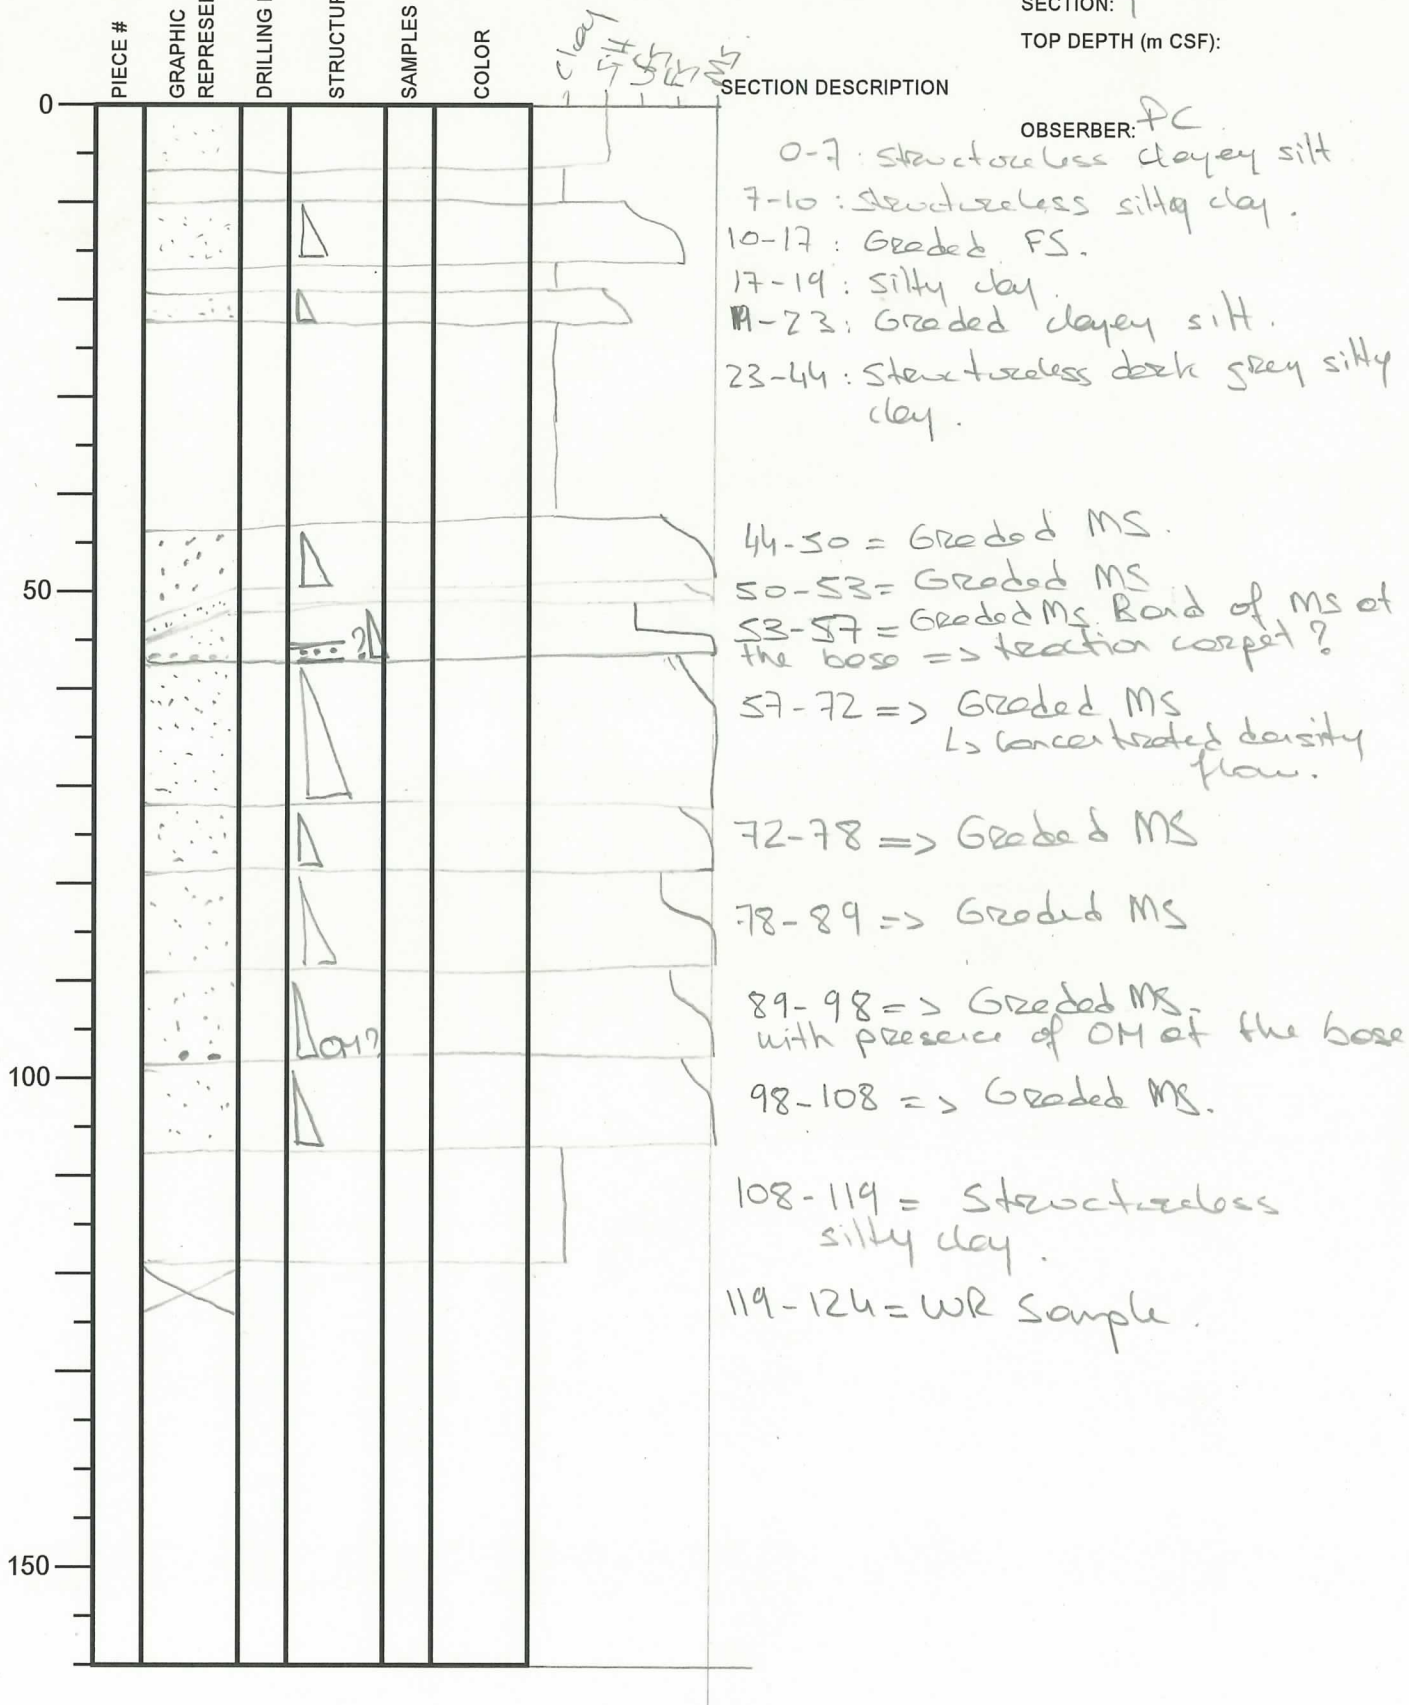 SECTION: 1
TOP DEPTH (m CSF):
PIECE #
GRAPHIC
DRILLING
SAMPLES
COLOR
Clay
Silt
SECTION DESCRIPTION
OBSERBER: PC
0
0-7: Structureless clayey silt
7-10: Structureless silty clay.
10-17: Graded FS.
17-19: Silty clay.
19-23: Graded clayey silt.
23-44: Structureless dark grey silty
clay.
44-50 = Graded MS.
50
50-53 = Graded MS
53-57 = Graded MS. Band of MS at
the base => traction carpet?
?
57-72 => Graded MS
↳ Concentrated density
flow.
72-78 => Graded MS
78-89 => Graded MS
89-98 => Graded MS.
with presence of OM at the base
OM?
100
98-108 => Graded MS.
108-119 = Structureless
silty clay.
119-124 = WR Sample.
150